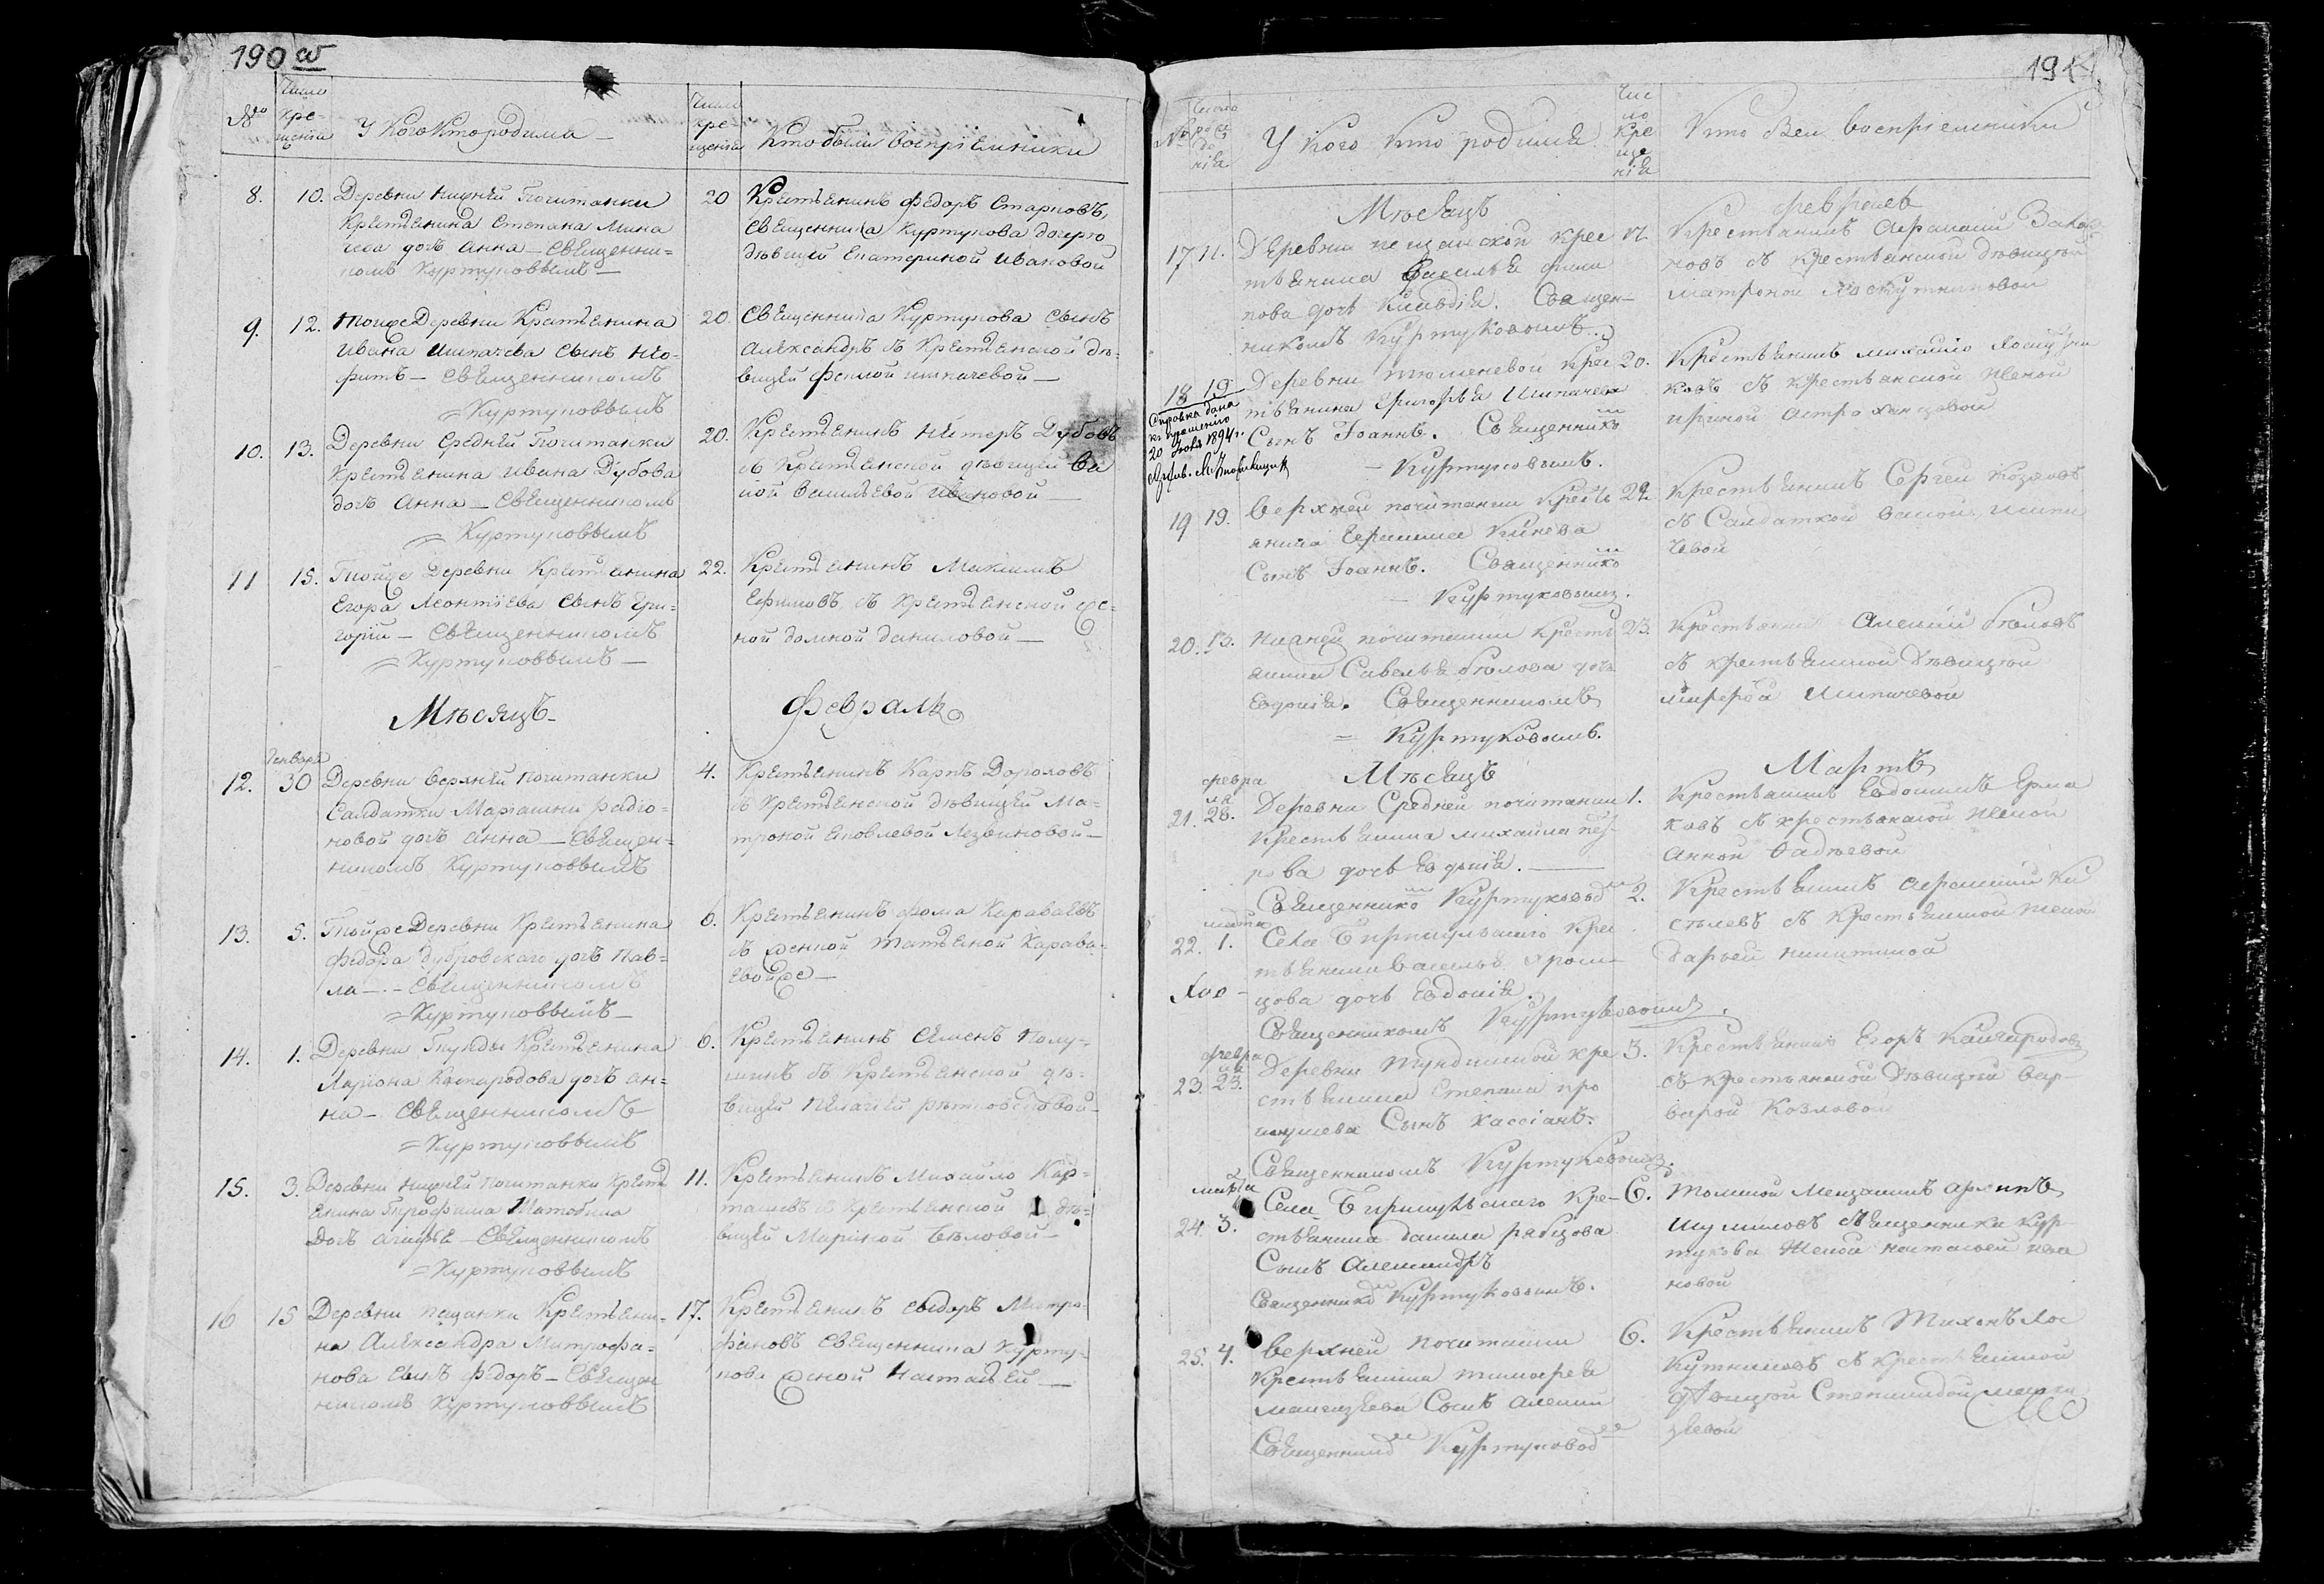 190 об
№
Число
кре-
щенія
У Кого Кто родился —
Число
кре-
щенія
Кто были воспріемники
8. 10. Деревни Нижней Почитанки
Крестьянина Степана Мина
чева дочь Анна — Священни=
комъ Куртуковымъ —
20 Крестьянинъ Федоръ Старковъ,
священника Куртукова дочерью
дѣвицей Екатериной Ивановой
9. 12. Тойже Деревни Крестьянина
Ивана Шипачева сынъ Нео-
фитъ — Священникомъ
= Куртуковымъ
20. Священника Куртукова сынъ
Александръ съ Крестьянской дѣ-
вицей Феклой Шипачевой —
10. 13. Деревни Средней Почитанки
Крестьянина Ивана Дубова
дочь Анна — Священникомъ
= Куртуковымъ
20. Крестьянинъ Петеръ Дубовъ
съ Крестьянской дѣвицей Ва
ной Васильевой Ивановой —
11 15. Тойже Деревни Крестьянина
Егора Леонтіева сынъ Гри-
горій — Священникомъ
= Куртуковымъ —
22. Крестьянинъ Максимъ
Ефимовъ съ Крестьянской же-
ной Домной Даниловой —
Мѣсяцъ-
Февраль
Генваря
12. 30 Деревни Верхней Почитанки
Салдатки Маріамны Радіо-
новой дочь Анна — Священ=
никомъ Куртуковымъ
4. Крестьянинъ Карпъ Дороховъ
съ Крестьянской дѣвицей Ма-
троной Яковлевой Лезвиновой —
13. 5. Тойже Деревни Крестьянина
Федора Дубровскаго дочь Пав=
ла — - Священникомъ
= Куртуковымъ —
6. Крестьянинъ Фома Караваевъ
съ женой Татьяной Карава-
евойже —
14. 1. Деревни Тунды Крестьянина
Ларіона Кайгародова дочь Ан-
на — Священникомъ
= Куртуковымъ
6. Крестьянинъ Семенъ Полу-
шинъ съ Крестьянской дѣ-
вицей Пелагіей
15. 3. Деревни Нижней Почитанки Крестья
янина Трофима Шатобина
дочь Агафья — Священникомъ
= Куртуковымъ
11. Крестьянинъ Михайло Кар-
ташевъ съ Крестьянской дѣ-
вицей Мариной Бѣловой —
16 15 Деревни Пещанки Крестьяни-
на Александра Митрофа-
нова сынъ Федоръ — Священ
никомъ Куртуковымъ
17. Крестьянинъ Сидоръ Митро-
фановъ Священника Курту-
кова женой Натальей —
191
№
Число
рож
де
нія
У Кого Кто родился
Чис
ло
Кре
ще
нія
Кто Был воспріемники
Мѣсяцъ
февраль
17 11. Деревни пещанской Крес
тьянина Василья Фили
пова дочь Клавдія. Священ-
никомъ Куртуковымъ.
17. Крестьянинъ Афанасій Заха
ровъ съ Крестьянской дѣвицей
матроной Лоскутниковой
18 19
Справка дана
къ прошенію
20 Іюля 1894 г.
Деревни тюменевой Крес
тьянина Григорья Шипачева
Сынъ Іоаннъ. Священнико
м
— Куртуковымъ.
20. Крестьянинъ михайло Лоскутни
ковъ съ Крестьянской женой
ириной астраханцовой
19 19. верхней почитанки Кресть
янина Герасима Кинева
Сынъ Іоаннъ. Священнико
м
— Куртуковымъ.
22. Крестьянинъ Сергей Козловъ
съ Салдаткой Васой Шипа
чевой
20. 13. нижней почитанки Кресть
янина Савелья Бѣлова дочь
Евдокія. Священникомъ
= Куртуковымъ.
23. Крестьянинъ Алексей Бѣловъ
съ крестьянской дѣвицей
марфой Шипачевой
Мѣсяцъ
Мартъ
февра
ля
21. 28. Деревни Средней почитанки
Крестьянина михаила пет
рова дочь Евдокія. —
Священнико м Куртуковы м
1. Крестьянинъ Евдокимъ Ерма
ковъ съ крестьянской женой
Анной Фадѣевой
марта
22. 1. Села Бирикульскаго Крес
тьянина Василья
цова дочь Евдокія.
Священникомъ Куртуковымъ.
2. Крестьянинъ Афанасій Ки
селевъ съ Крестьянской женой
Дарьей никитиной
февра
ля
23. 23. Деревни тундинской кре
стьянина Степана про
кушева Сынъ Кассіанъ.
Священникомъ Куртуковымъ.
3. Крестьянинъ Егоръ Кайгародовъ
съ крестьянской дѣвицей Вар-
варой Козловой
марта
24. 3. Села Бирикульскаго Кре-
стьянина данила рябцова
Сынъ Александръ
Священнико м Куртуковымъ.
6. Томской Мещанинъ архипъ
Шумиловъ священника Кур
тукова Женой натальей ива
новой
25. 4. верхней почитанки
Крестьянина тимофея
Сынъ Алексей
Священнико м Куртуковы м
6. Крестьянинъ Тихонъ Лос
кутниковъ съ Крестьянской
дѣвицей Степанидой